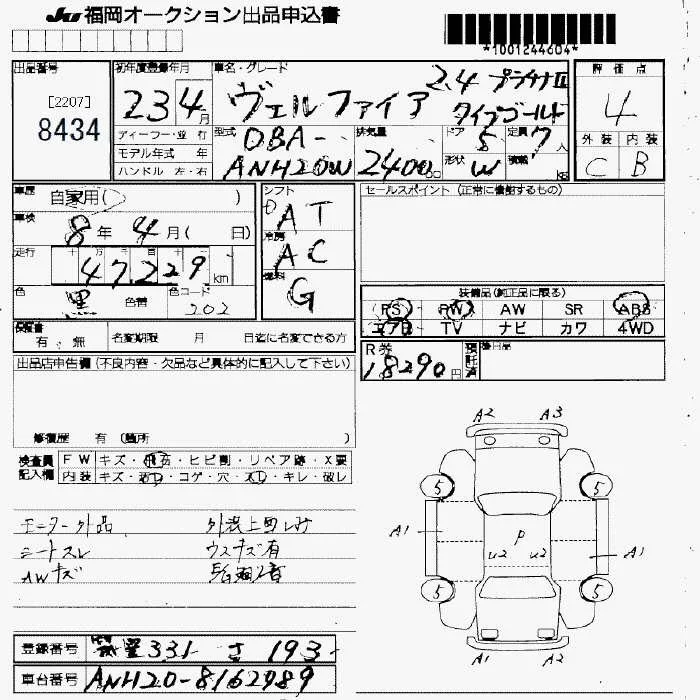 JU 福岡オークション出品申込書
*1001244604*
出品番号
[2207]
8434
初年度登録年月
23 4月
車名・グレード
ヴェルファイア
2.4 プラチナII
タイプゴールド
評価点
4
外装 内装
C B
ディーラー・並行
モデル年式 年
ハンドル 左・右
型式
DBA-
ANH20W
排気量
2400cc
ドア 5
形状 W
定員 7人
積載 kg
車歴 自家用( )
車検
8年 4月( 日)
走行 十 万 千 百 十 一
47229km
色 黒 色替 色コード 202
シフト
AT
冷房
AC
燃料
G
セールスポイント (正常に機能するもの)
装備品(純正品に限る)
PS PW AW SR ABS
エアB TV ナビ カワ 4WD
保証書
有・無 名変期限 月 日迄に名変できる方
R券
18290円
預託済
後日品
出品店申告欄 (不良内容・欠品など具体的に記入して下さい)
修復歴 有 (箇所 )
検査員
記入欄
FW キズ・飛石・ヒビ割・リペア跡・X要
内装 キズ・汚れ・コゲ・穴・スレ・キレ・破レ
モニター外品
シートスレ
AWキズ
ウスキズ有
A2 A3
5 5
A1 P A1
U2 U2
5 5
A1 A2
登録番号 331 さ 193
車台番号 ANH20-8162989